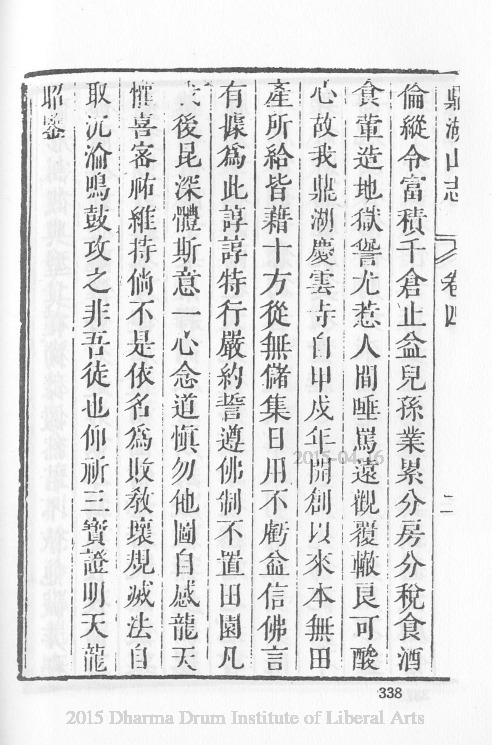 鼎湖山志 卷四 二
倫縱令富積千倉止益兒孫業累分房分稅食酒
食葷造地獄愆尤惹人間唾罵遠觀覆轍良可酸
心故我鼎湖慶雲寺自甲戌年開創以來本無田
產所給皆藉十方從無儲集日用不虧益信佛言
有據爲此諄諄特行嚴約誓遵佛制不置田園凡
後昆深體斯意一心念道愼勿他圖自感龍天
懽喜密祐維持倘不是依名爲敗教壞規滅法自
取沉淪鳴鼓攻之非吾徒也仰祈三寶證明天龍
昭鑒
2015-04-16
338
2015 Dharma Drum Institute of Liberal Arts